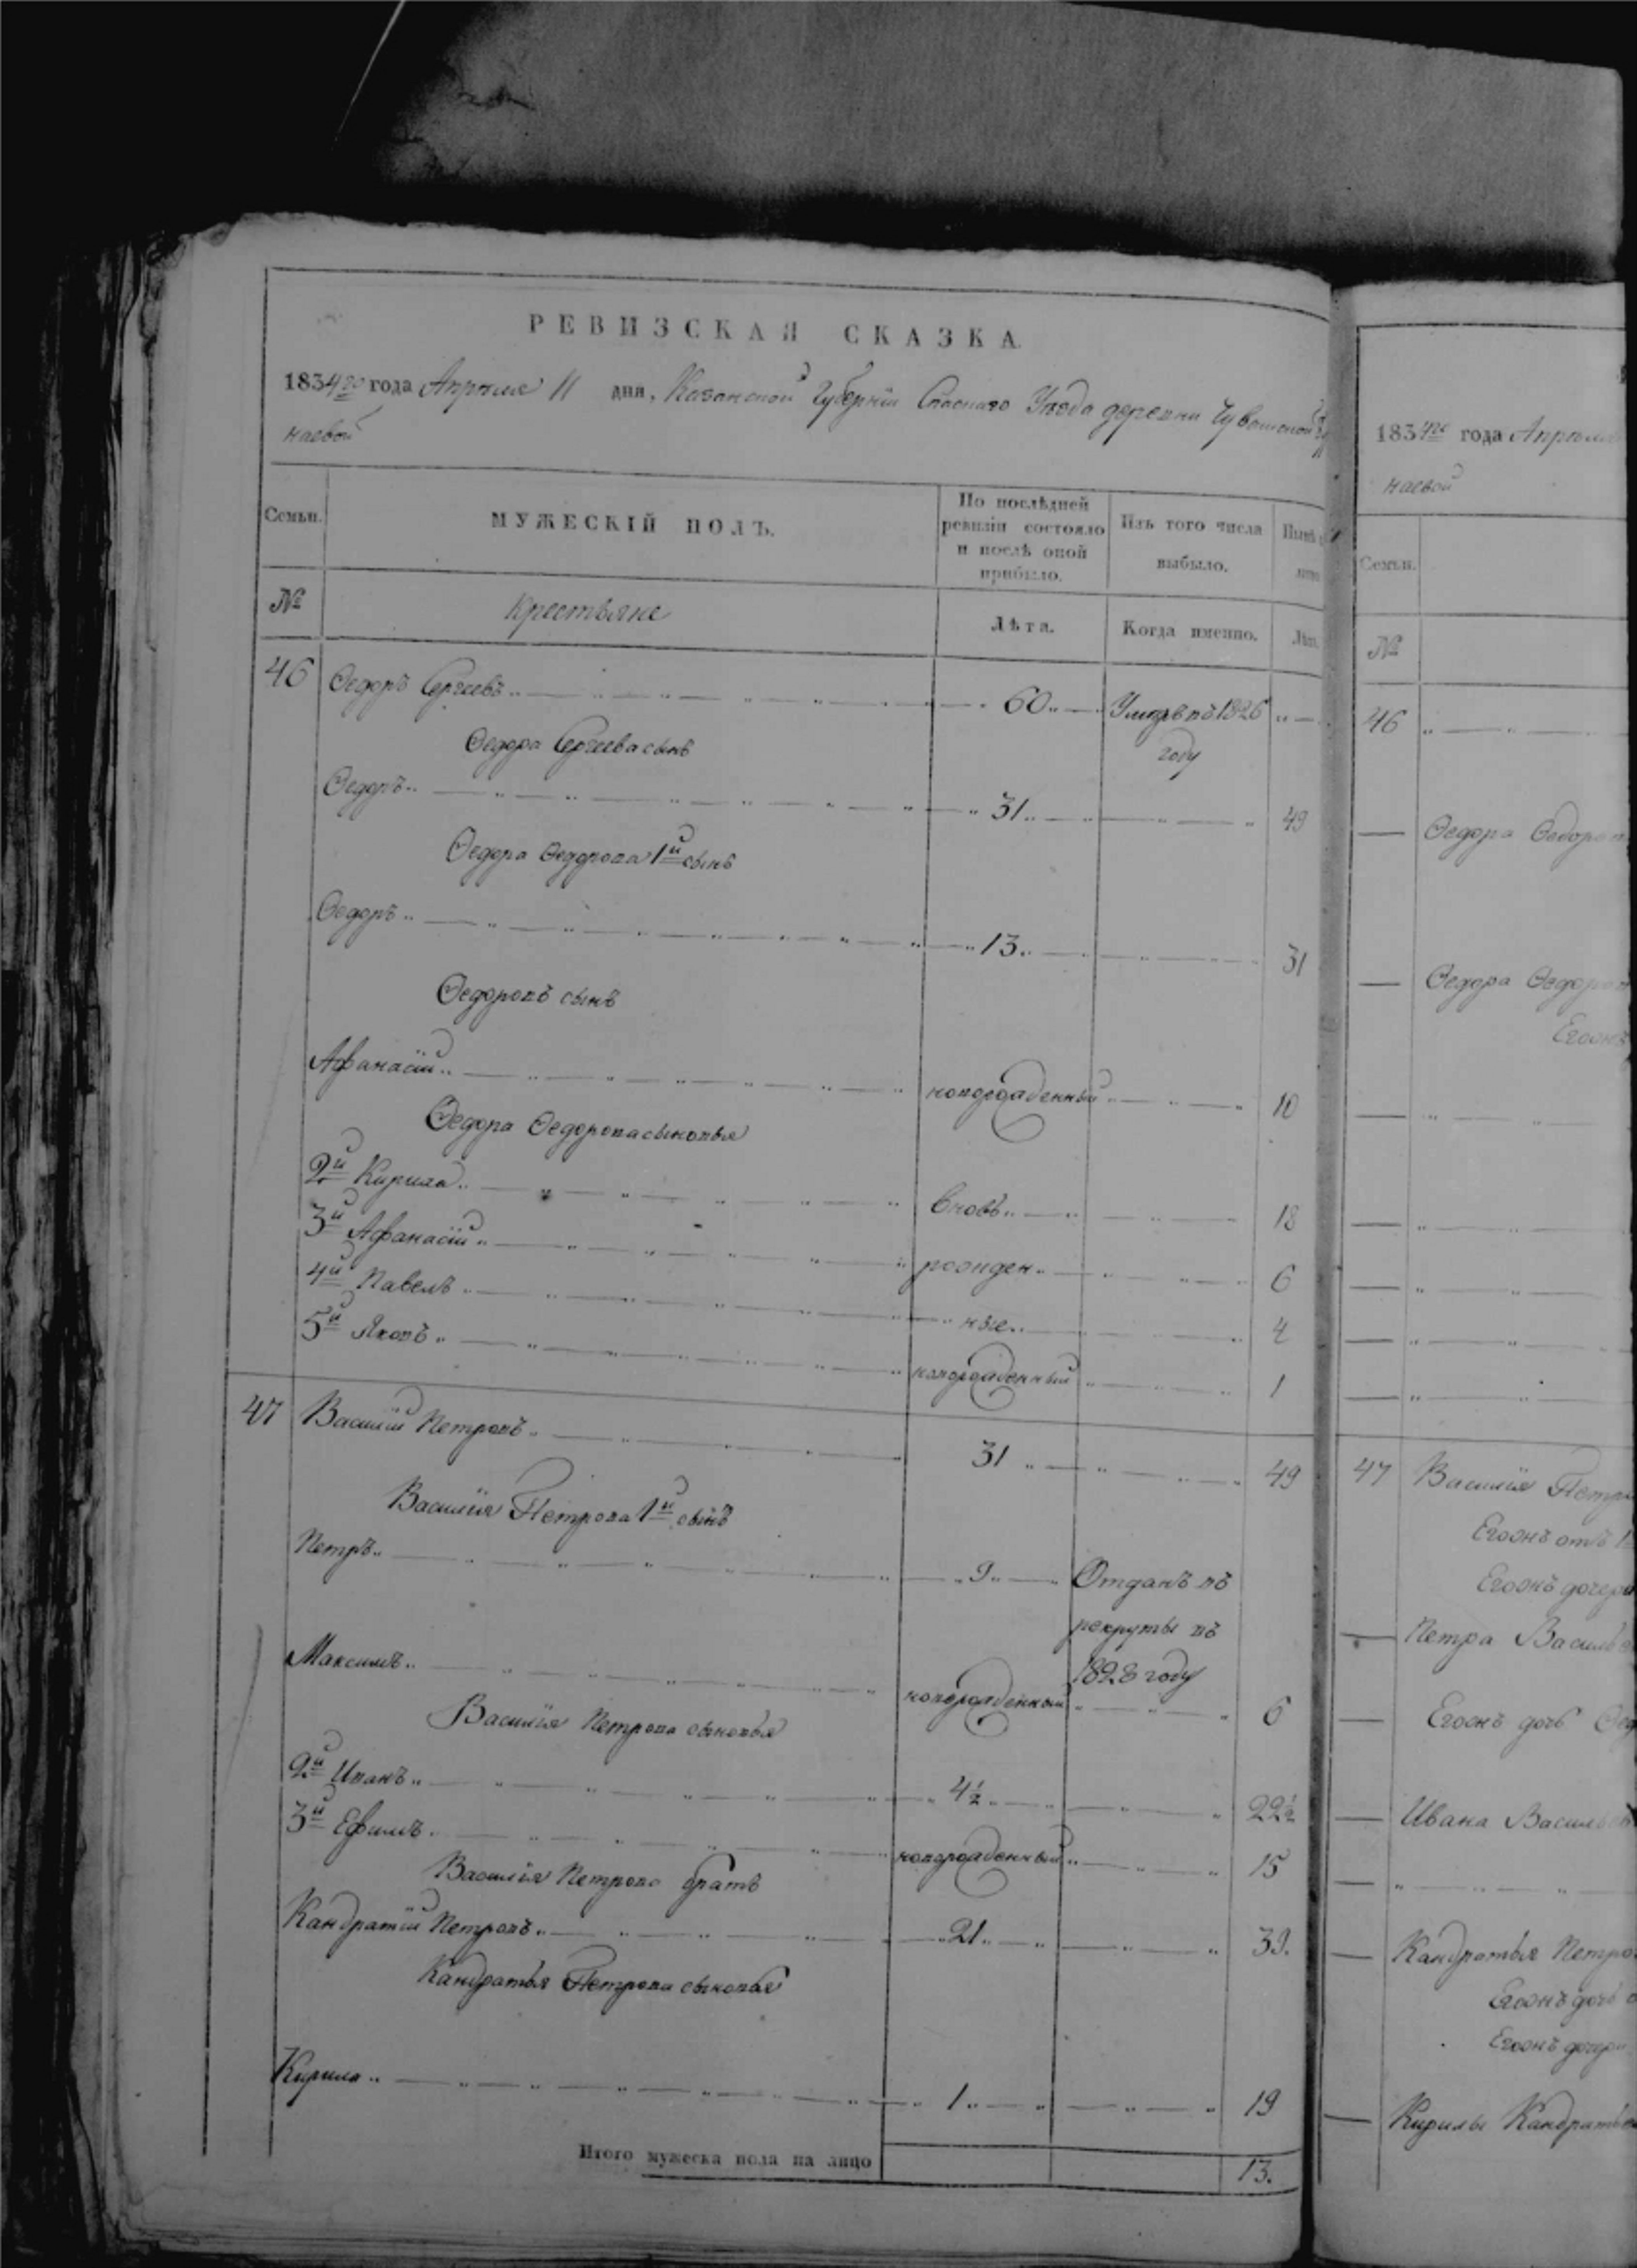 РЕВИЗСКАЯ СКАЗКА
1834го года Апрѣля 11 дня, Казанской Губерніи Спаскаго Уѣзда деревни Чувашской
наевой
Семьи.
МУЖЕСКІЙ ПОЛЪ.
По послѣдней ревизіи состояло и послѣ оной прибыло.
Изъ того числа выбыло.
Нынѣ
№
Крестьяне
Лѣта.
Когда именно.
Лѣта.
46 Федоръ Сергеевъ 60 Умеръ въ 1826
году
Федора Сергеева сынъ
Федоръ 31 49
Федора Федорова 1й сынъ
Федоръ 13 31
Федоровъ сынъ
Афанасій новорожденный 10
Федора Федорова сыновья
2й Кирила вновь 18
3й Афанасій рожден 6
4й Павелъ ные 4
5й Яковъ новорожденный 1
47 Василій Петровъ 31 49
Василія Петрова 1й сынъ
Петръ 9 Отданъ въ
рекруты въ
1828 году
Максимъ новорожденный 6
Василія Петрова сыновья
2й Иванъ 4½ 22½
3й Ефимъ новорожденный 15
Василія Петрова братъ
Кандратій Петровъ 21 39.
Кандратья Петрова сыновья
Кирила 1 19
Итого мужеска пола на лицо 13.
1834го года Апрѣля
наевой
Семьи.
№
46
Федора Федоров
Федора Федоров
Егожъ
47 Василія Петро
Егожъ отъ 1
Егожъ дочери
Петра Василье
Егожъ дочь
Ивана Василье
Кандратья Петро
Егожъ дочь
Егожъ дочери
Кирилы Кандратье